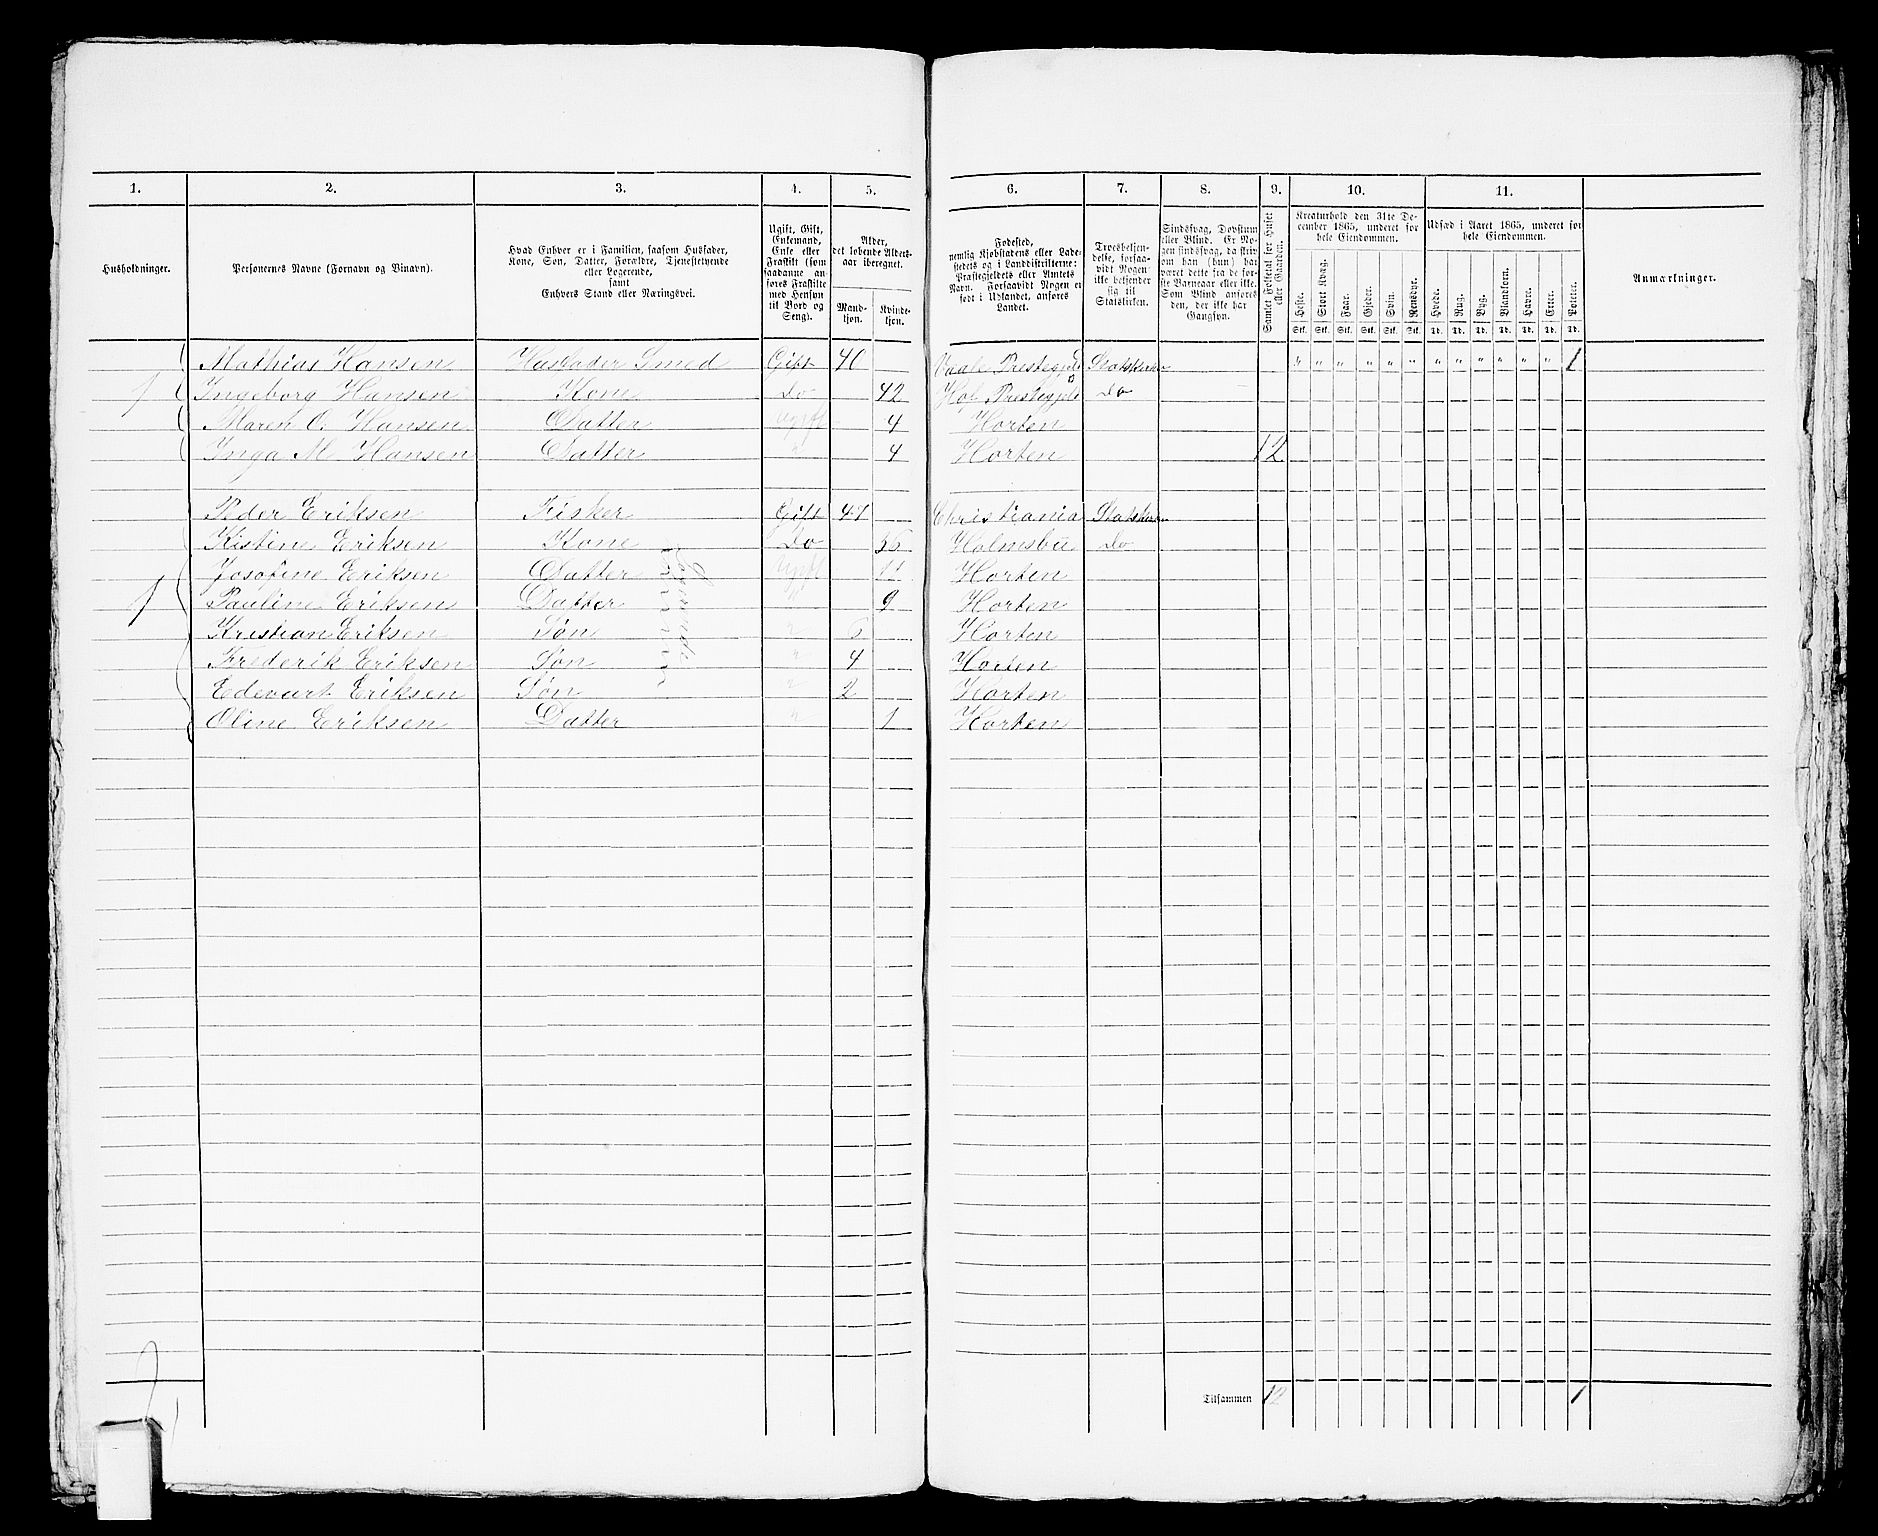 1. 2. 3. 4. 5. 6. 7. 8. 9. 10. 11.
Husholdninger.
Personernes Navne (Fornavn og Vinavn).
Hvad Enhver er i Familien, saasom Husfader,
Kone, Søn, Datter, Forældre, Tjenestetyende
eller Logerende,
samt
Enhvers Stand eller Næringsvei.
Ugift, Gift,
Enkemand,
Enke eller
Fraskilt (som
saadanne an-
føres Fraskilte
med Hensyn
til Bord og
Seng).
Alder,
det løbende Alders-
aar iberegnet.
Mand-
kjøn.
Kvinde-
kjøn.
Fødested,
nemlig Kjøbstadens eller Lade-
stedets og i Landdistrikterne:
Præstegjeldets eller Amtets
Navn. Forsaavidt Nogen er
født i Udlandet, anføres
Landet.
Troesbekjen-
delse, forsaa-
vidt Nogen
ikke bekjender
sig til
Statskirken.
Sindssvag, Døvstum
eller Blind. Er No-
gen sindssvag, da skriv
om han (hun) har
været dette fra de før-
ste Barneaar eller ikke.
Som Blind anføres
den, der ikke har
Gangsyn.
Samlet Folketal for Huset
eller Gaarden.
Kreaturhold den 31te De-
cember 1865, underet for
hele Eiendommen.
Heste. Stort Kvæg. Faar. Gjeder. Svin. Rensdyr.
Stk. Stk. Stk. Stk. Stk. Stk.
Udsæd i Aaret 1865, underet for
hele Eiendommen.
Hvede. Rug. Byg. Blandkorn. Havre. Erter. Poteter.
Td. Td. Td. Td. Td. Td. Td.
Anmærkninger.
Mathias Hansen Husfader Smed Gift 40 Vaale Prestegjeld Statskirken " " " " " " " " " " " " 1
1 Ingeborg Hansen Kone Do 42 Hof Prestegjeld Do
Maren O. Hansen Datter Ugift 4 Horten
Inga M Hansen Datter " 4 Horten 12
Peder Eriksen Fisker Gift 47 Christiania Statskirken
Kistine Eriksen Kone Do 35 Holmsbu Do
Josofine Eriksen Datter Ugift 12 Horten
1 Pauline Eriksen Datter " 9 Horten
Kristian Eriksen Søn " 6 Horten
Frederik Eriksen Søn " 4 Horten
Edevart Eriksen Søn " 2 Horten
Oline Eriksen Datter " 1 Horten
Logerende
2
Tilsammen 12 1